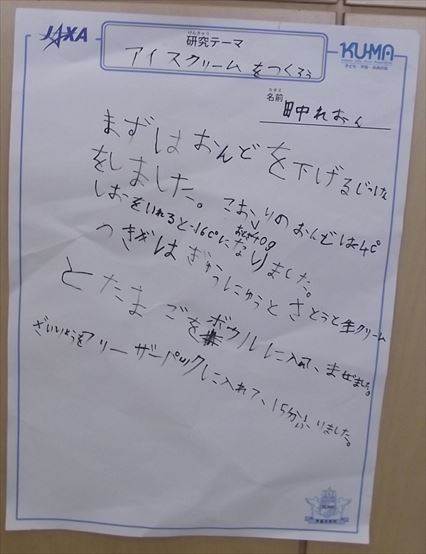 JAXA
けんきゅう
研究テーマ
アイスクリームをつくろう
KUMA
なまえ
名前 田中れおん
まずはおんどを下げるじっけん
をしました。こおりのおんどは4℃
しおをいれると-16℃になりました。
つぎはぎゅうにゅうとさとうと生クリーム
とたまごをボウルに入れ、まぜました。
ざいりょうをフリーザーパックに入れて、15分ふりました。